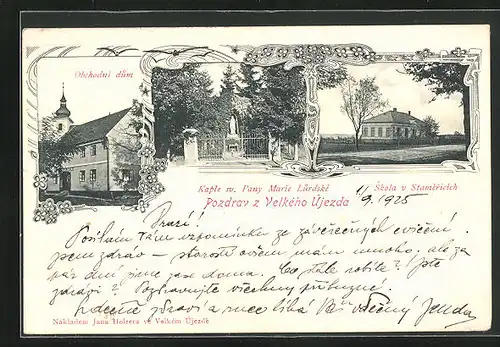 Obchodní dům
Kaple sv. Pany Marie Lůrdské
Škola v Staměřicích
Pozdrav z Velkého Újezda
11/9. 1925
Drazí!
Posílám Vám vzpomínku ze závěrečných cvičení.
jsem zdráv – starostí ovšem mám mnoho. ale za
pár dní jsme zase doma. Co stále robíte? jste
zdrávi? Pozdravujte všechny příbuzné.
srdečně zdraví a ruce líbá Váš vděčný Jenda
Nákladem Jana Holzera ve Velkém Újezdě